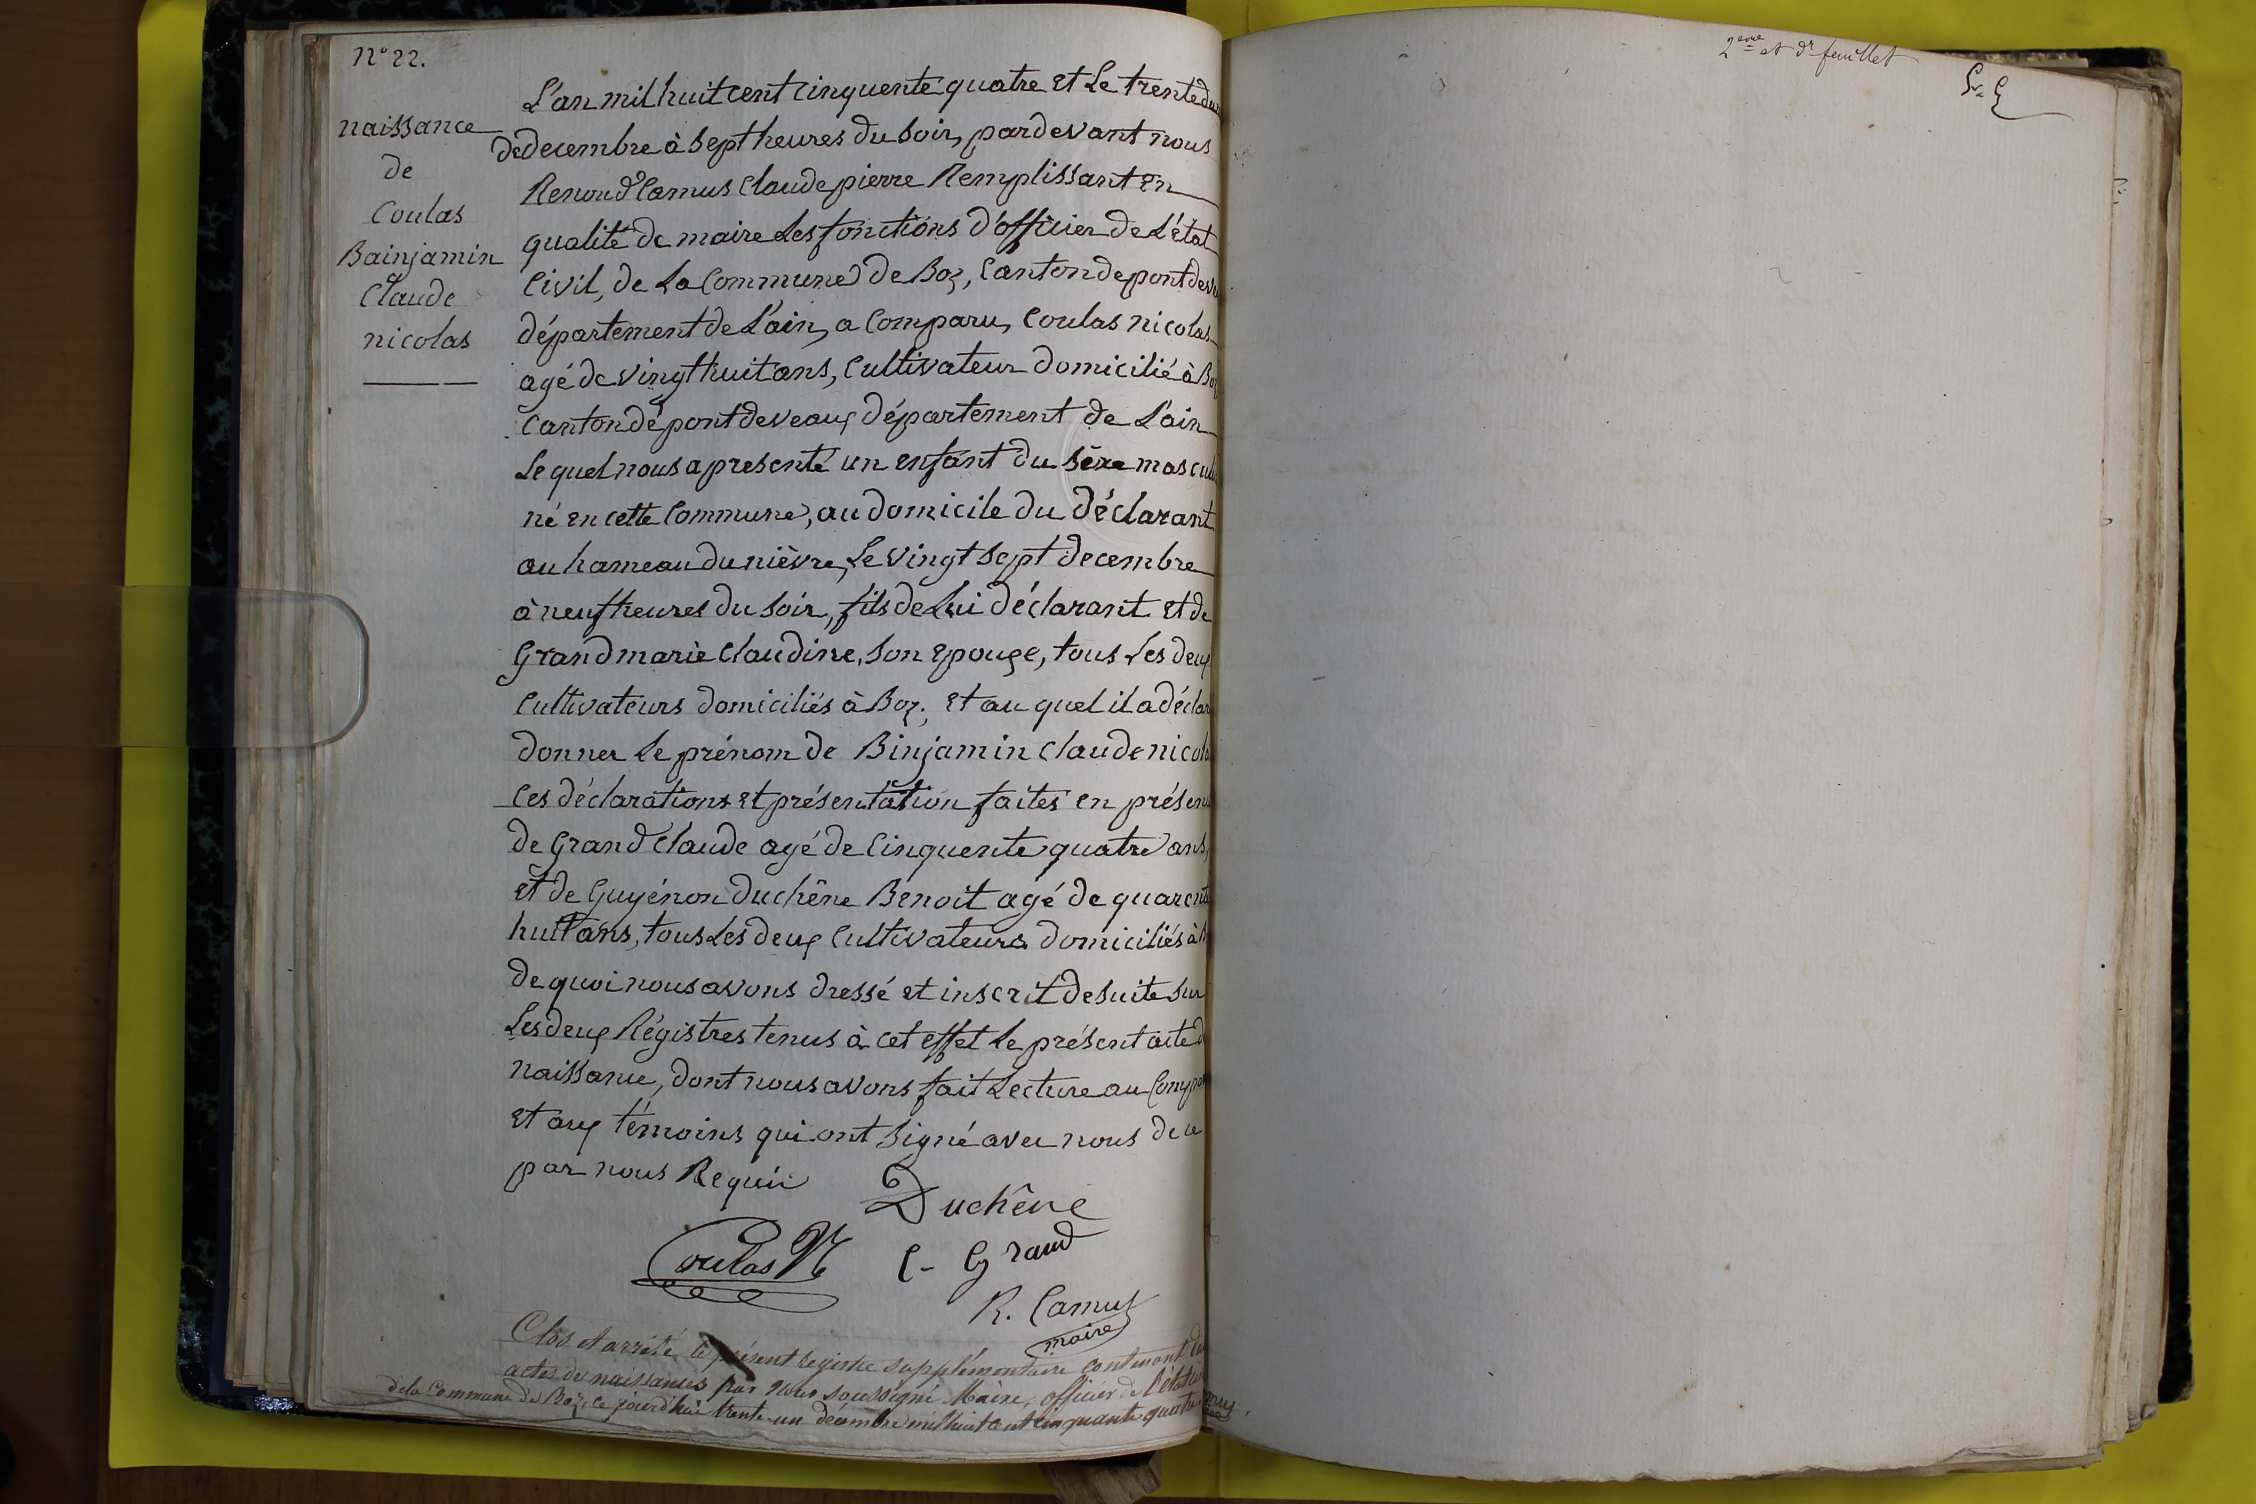 N° 22.
naissance
de
Coulas
Bainjamin
Claude
nicolas
L'an mil huit cent cinquente quatre et Le trente
de decembre à sept heures du soir, pardevant nous
Renoud Camus Claude pierre Remplissant en
qualité de maire Les fonctions d'officier de L'état
Civil, de La Commune de Boz, Canton de pont de
département de L'ain, a Comparu, Coulas nicolas
agé de vingt huit ans, Cultivateur domicilié à Boz
Canton de pont de veaux département de L'ain
Le quel nous a presenté un enfant du sèxe
né en cette Commune, au domicile du déclarant
au hameau du nièvre, Le vingt sept decembre
à neuf heures du soir, fils de Lui déclarant et de
Grand marie Claudine, son epouse, tous Les deux
Cultivateurs domiciliés à Boz, et au quel il a
donner Le prénom de Binjamin Claude
Ces déclarations et présentation faites en
de Grand Claude agé de Cinquente quatre ans,
et de Guyénon Duchêne Benoit agé de
huit ans, tous Les deux Cultivateurs domiciliés à
de quoi nous avons dressé et inscrit de suite sur
Les deux Régistres tenus à cet effet Le présent acte
naissance, dont nous avons fait Lecture au
et aux témoins qui ont signé avec nous de ce
par nous Requis
Duchêne
Coulas N
C. Grand
R. Camus
maire
Clos et arrêté le présent registre supplémentaire contenant
actes de naissances par nous soussigné Maire, officier de
de la Commune de Boz, ce jourd'hui trente un décembre mil huit cent cinquante quatre
2eme et dr feuillet